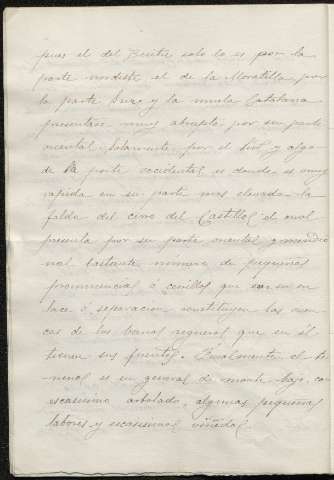 pues el del Buitre solo lo es por la
parte nordeste el de la Moratilla por
la parte sur, y la muela Catalana
presentase muy abrupta por su parte
oriental. Solamente por el Sud y algo
de la parte occidental es donde es muy
rapida en su parte mas elevada la
falda del cerro del Castillo, el cual
presenta por su parte oriental y meridio
nal bastante número de pequeñas
prominencias ó cerrillos que en su en
lace ó separacion constituyen las cuen
cas de los varios regueros que en él
tienen sus fuentes. Igualmente el te
rreno es en general de monte bajo, con
escasisimo arbolado, algunas pequeñas
labores y escasisimos viñedos.